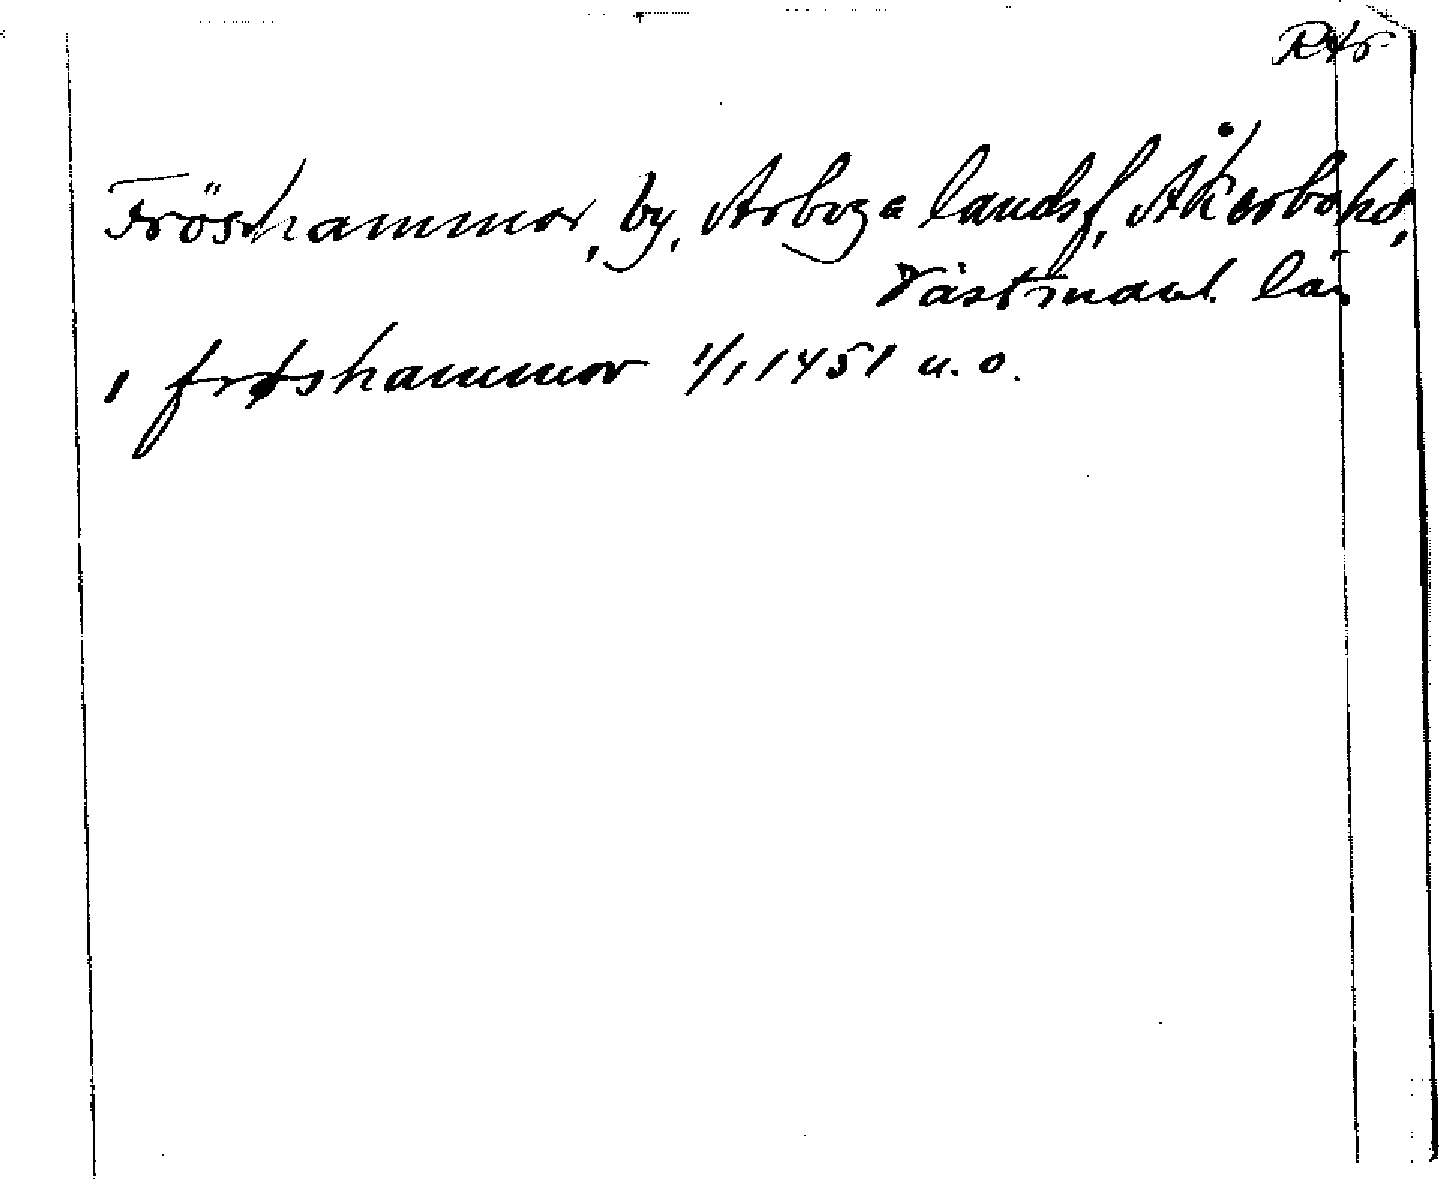 Rtr
Fröshammar, by, Arboga landsf, Åkerbo hd,
Västmanl. län
i frøshammar 1/1 1451 u. o.